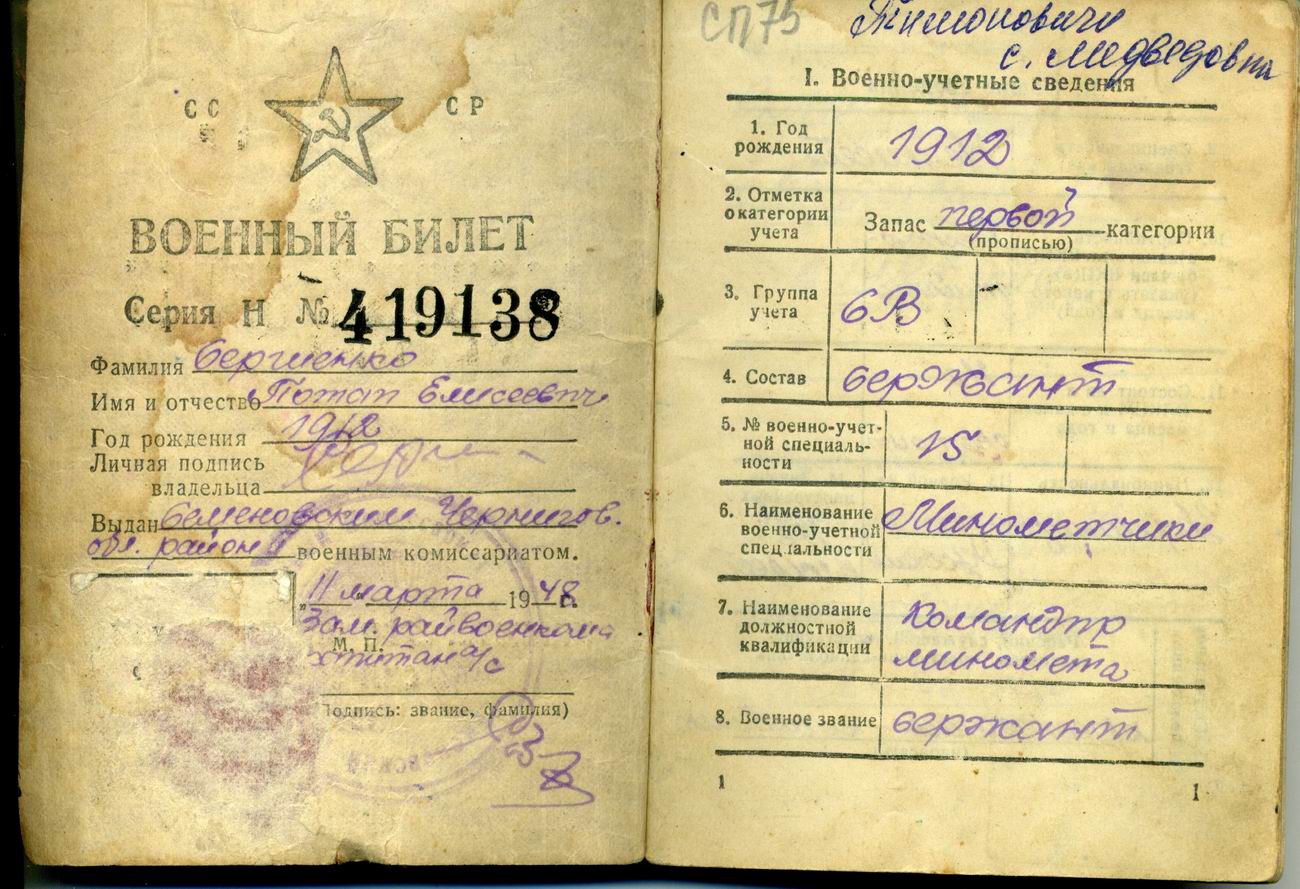 СС СР
ВОЕННЫЙ БИЛЕТ
Серия Н № 419138
Фамилия Сергиенко
Имя и отчество Потап Елисеевич
Год рождения 1912
Личная подпись
владельца
Выдан Семеновским Чернигов.
обл. район военным комиссариатом.
"11" марта 1948 г.
Зам. райвоенкома
М. П.
капитан а/с
Подпись: звание, фамилия)
СП75
Тимоновичи
с. Медведовка
I. Военно-учетные сведения
1. Год
рождения
1912
2. Отметка
о категории
учета
Запас первой категории
(прописью)
3. Группа
учета
СВ
4. Состав сержант
5. № военно-учет-
ной специаль-
ности
15
6. Наименование
военно-учетной
специальности
Минометчики
7. Наименование
должностной
квалификации
Командир
миномета
8. Военное звание сержант
1 1